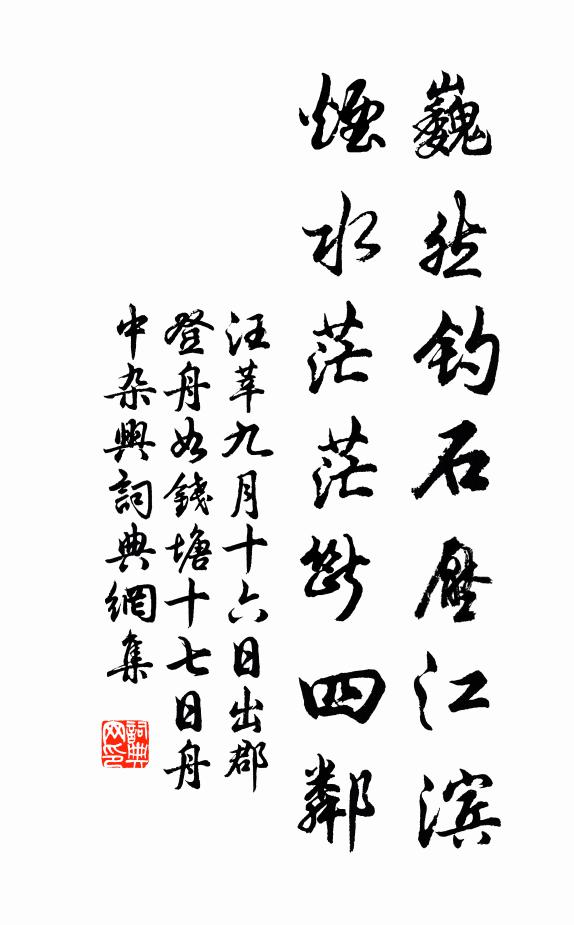 巍然钓石壓江滨
煙水茫茫断四鄰
汪莘九月十六日出郡
登舟如錢塘十七日舟
中杂興詞典網集
詞典网印